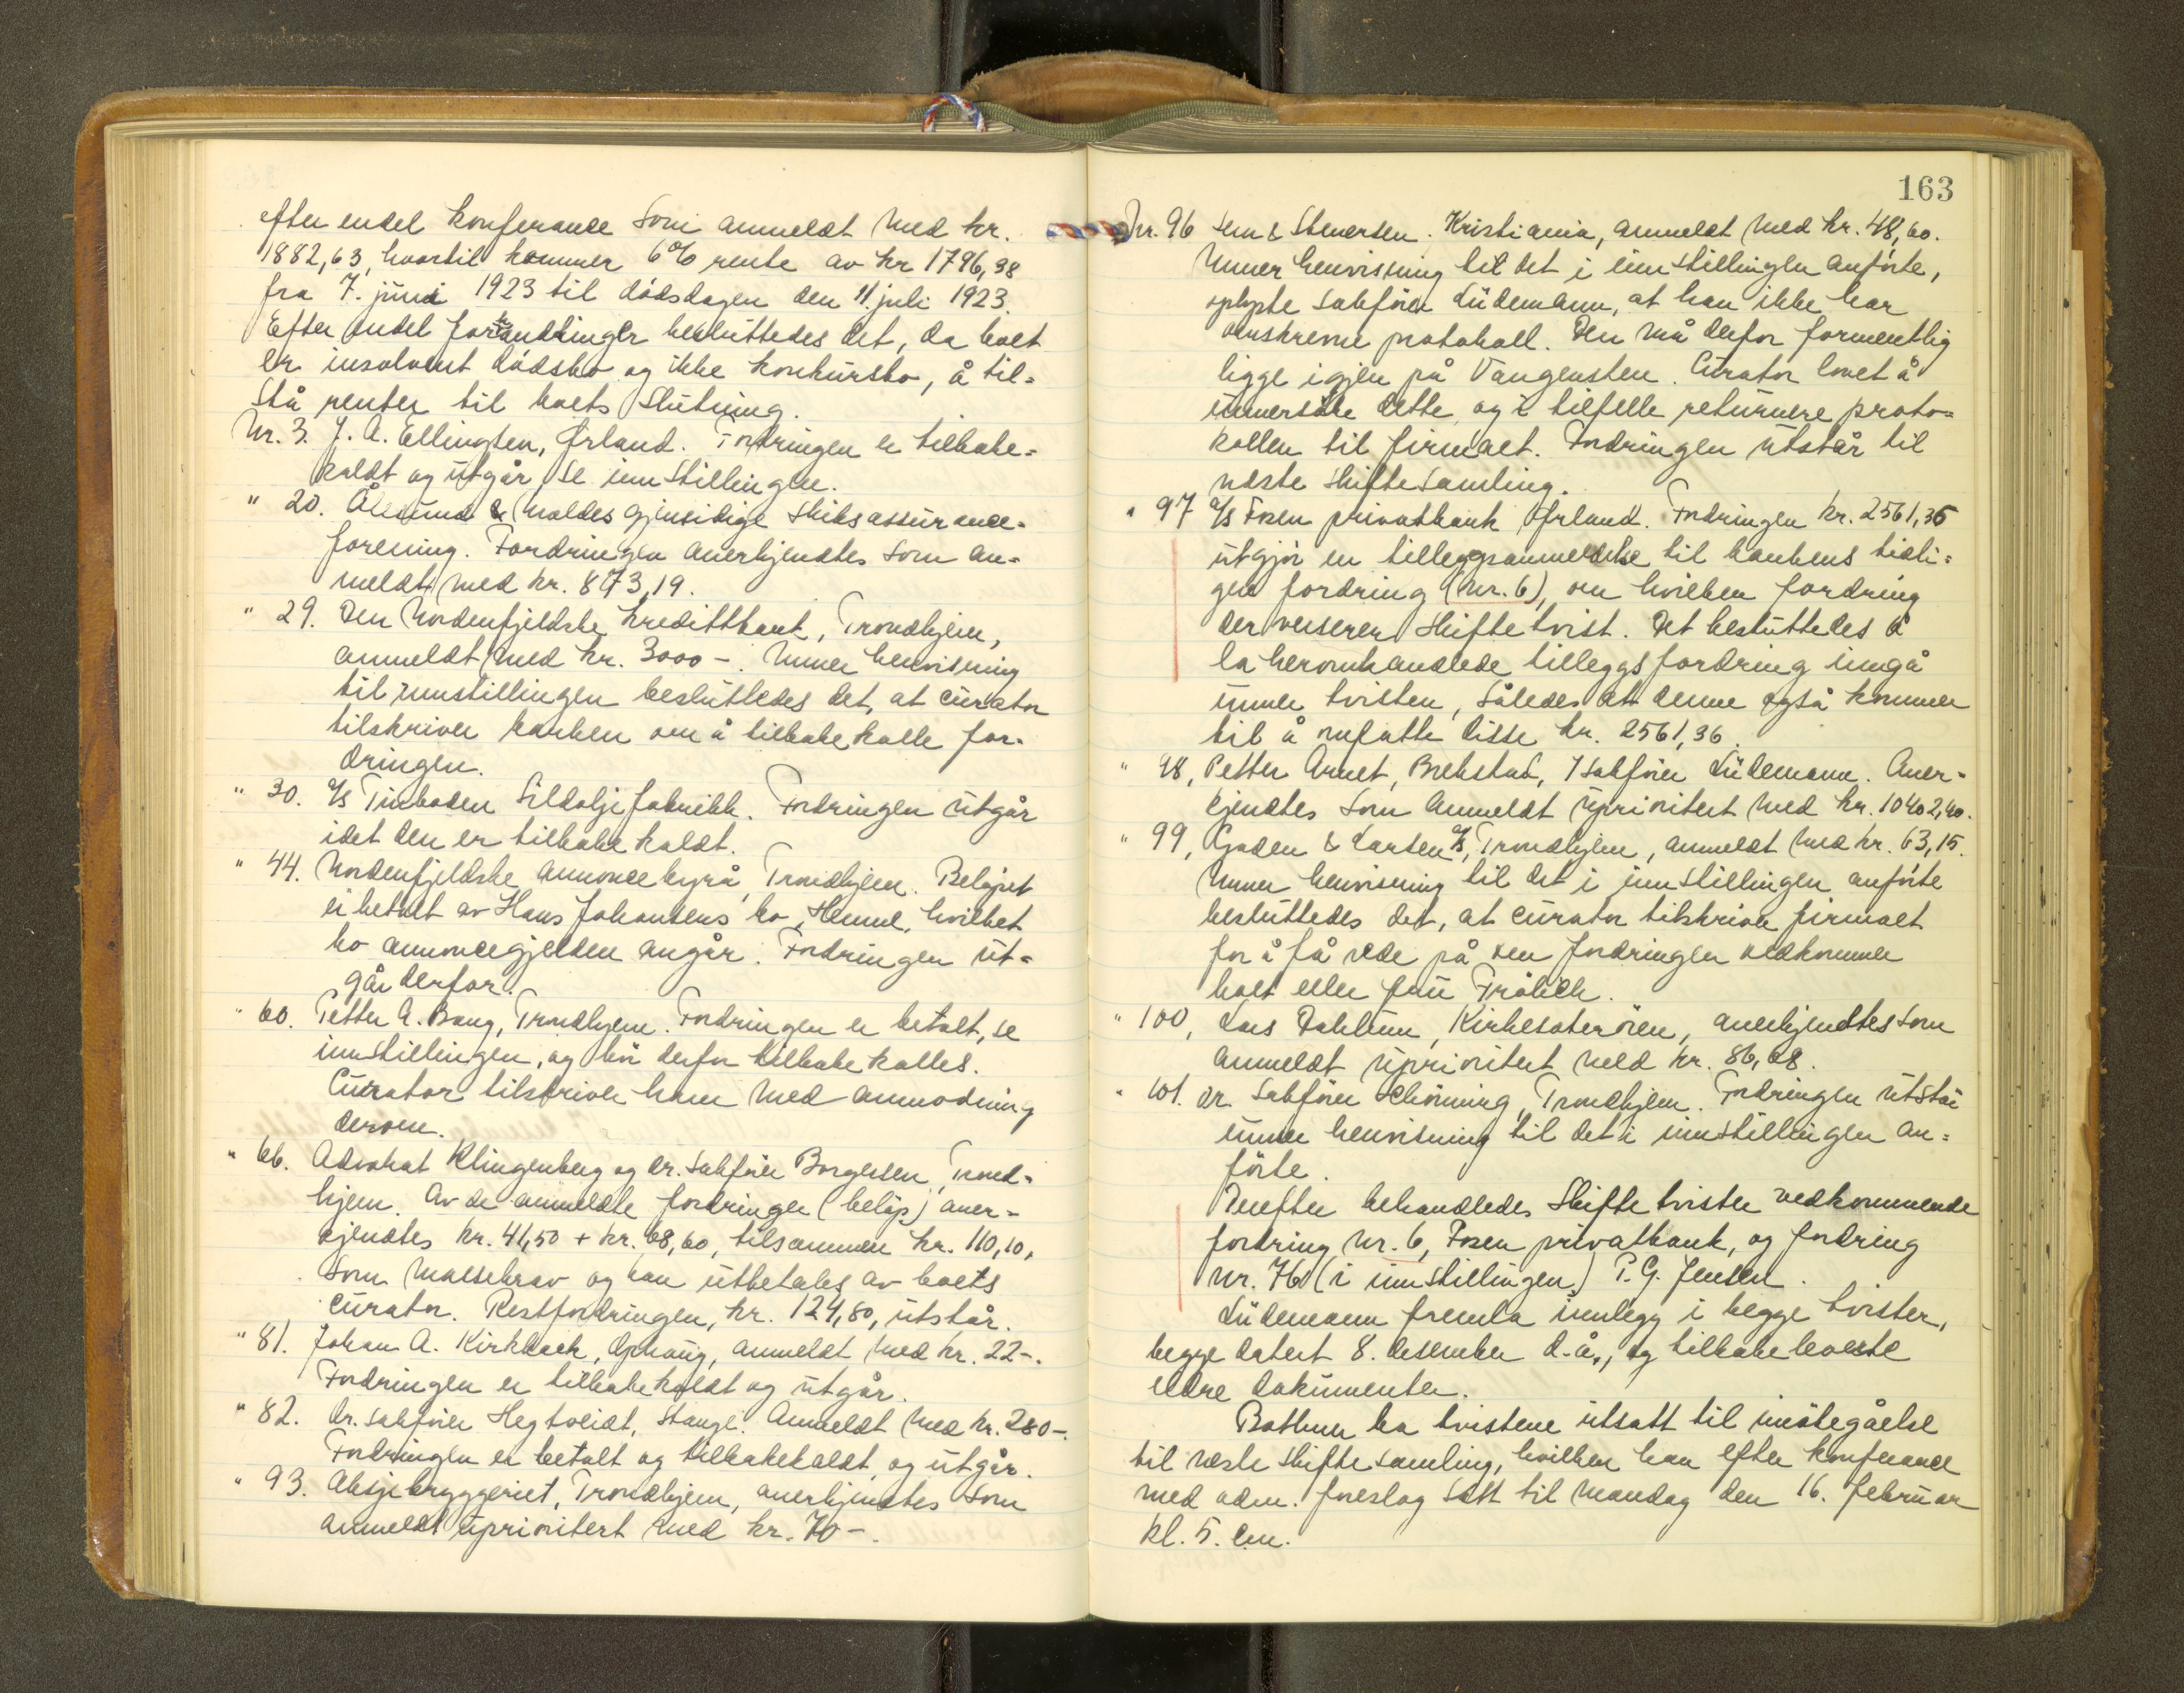 efter endel konferanse som anmeldt med kr.
1882,63, hvortil kommer 6% rente av kr 1796,38
fra 7. juni 1923 til dødsdagen den 11. juli 1923.
Efter endel forhandlinger besluttedes det, da boet
er insolvent dødsbo og ikke konkursbo, å til=
stå renter til boets slutning.
Nr. 3. J. A. Ellingsen, Ørland. Fordringen er tilbake=
kaldt og utgår, se innstillingen.
" 20. Ålesund & Moldes gjensidige skibsassurance-
forening. Fordringen anerkjendtes som an-
meldt med kr. 873,19.
" 29. Den Nordenfjeldske Kredittbank, Trondhjem,
anmeldt med kr. 3000-. Unner henvisning
til innstillingen besluttedes det, at curator
tilskriver banken om å tilbakekalle for-
dringen.
" 30. A/S Sildoljefabrikk. Fordringen utgår
idet den er tilbakekaldt.
" 44. Nordenfjeldske annoncebyrå, Trondhjem. Beløpet
er betalt av Hans Johansens bo, Hemne, hvilket
bo annoncegjelden angår. Fordringen ut-
går derfor.
" 60. Petter A. Bang, Trondhjem. Fordringen er betalt, se
innstillingen, og bør derfor tilbakekalles.
Curator tilskriver ham med anmodning
derom.
" 66. Advokat Klingenberg og Or. sakfører Borgersen, Trond-
hjem. Av de anmeldte fordringer (beløp) aner-
kjendtes kr. 41,50 + kr. 68,60, tilsammen kr. 110,10,
som massekrav og kan utbetales av boets
curator. Restfordringen, kr. 124,80, utstår.
" 81. Johan A. Kirkbach, Ophaug, anmeldt med kr. 22-.
Fordringen er tilbakekaldt og utgår.
" 82. Or. sakfører Hegtveidt, Stange. Anmeldt med kr. 280-.
Fordringen er betalt og tilbakekaldt, og utgår.
" 93. Aksjebryggeriet, Trondhjem, anerkjendtes som
anmeldt uprioritert med kr. 70-.
163
Nr. 96 Sem & Stenersen. Kristiania, anmeldt med kr. 48,60.
Unner henvisning til det i innstillingen anførte,
oplyste sakfører Lüdemann, at han ikke har
omskrevne protokoll. Den må derfor formentlig
ligge igjen på Vangensten. Curator lovet å
unnersøke dette og i tilfelle returnere proto=
kollen til firmaet. Fordringen utstår til
næste skiftesamling.
" 97 A/S Fosen privatbank Ørland. Fordringen kr. 2561,36
utgjør en tilleggsanmeldelse til bankens tidli=
gere fordring (Nr. 6), om hvilken fordring
der verserer skiftetvist. Det besluttedes å
la heromhandlede tilleggsfordring inngå
unner tvisten, således at denne også kommer
til å omfatte disse kr. 2561,36.
" 98, Petter Arnet, Brekstad, / sakfører Lüdemann. Aner-
kjendtes som anmeldt uprioritert med kr. 10402,40.
" 99, Gaden & Larsen A/S, Trondhjem, anmeldt med kr. 63,15.
Unner henvisning til det i innstillingen anførte
besluttedes det, at curator tilskriver firmaet
for å få rede på om fordringen vedkommer
boet eller fru Frölich.
" 100, Lars Dahlum, Kirkesæterøren, anerkjendtes som
anmeldt uprioritert med kr. 86,68.
" 101. Or. sakfører Schönning, Trondhjem. Fordringen utstår
unner henvisning til det i innstillingen an=
førte.
Derefter behandledes skiftetvister vedkommende
fordring Nr. 6, Fosen privatbank, og fordring
Nr. 76 (i innstillingen) P. G. Jensen.
Lüdemann fremla innlegg i begge tvister,
begge datert 8. desember d.å., og tilbakeleverte
eldre dokumenter.
Bothner ba tvistene utsatt til imøtegåelse
til næste skiftesamling, hvilken han efter konferance
med adm. foreslog satt til mandag den 16. februar
kl. 5. em.